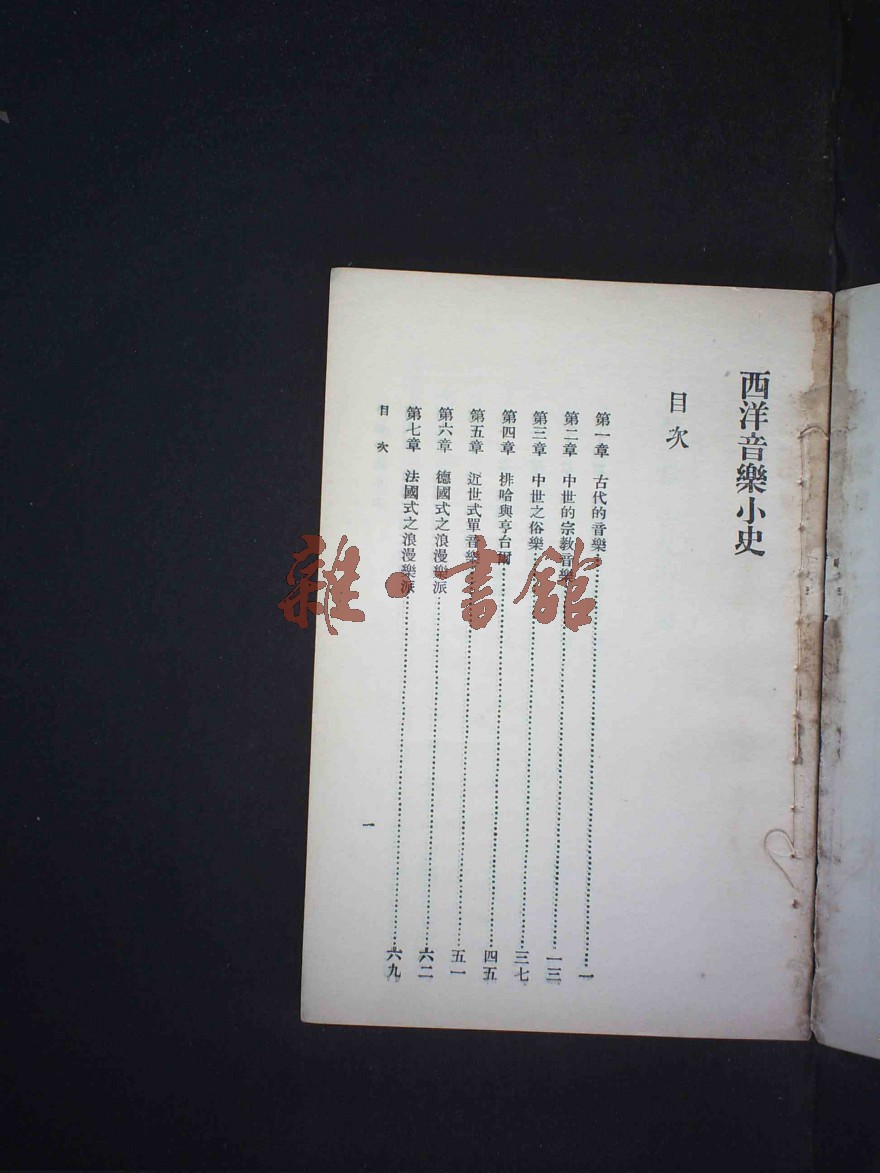 西洋音樂小史
目次
第一章 古代的音樂……一
第二章 中世的宗教音樂……一三
第三章 中世之俗樂……三七
第四章 排哈與亨台爾……四五
第五章 近世式單音樂……五一
第六章 德國式之浪漫樂派……六二
第七章 法國式之浪漫樂派……六九
目次
一
雜·書館